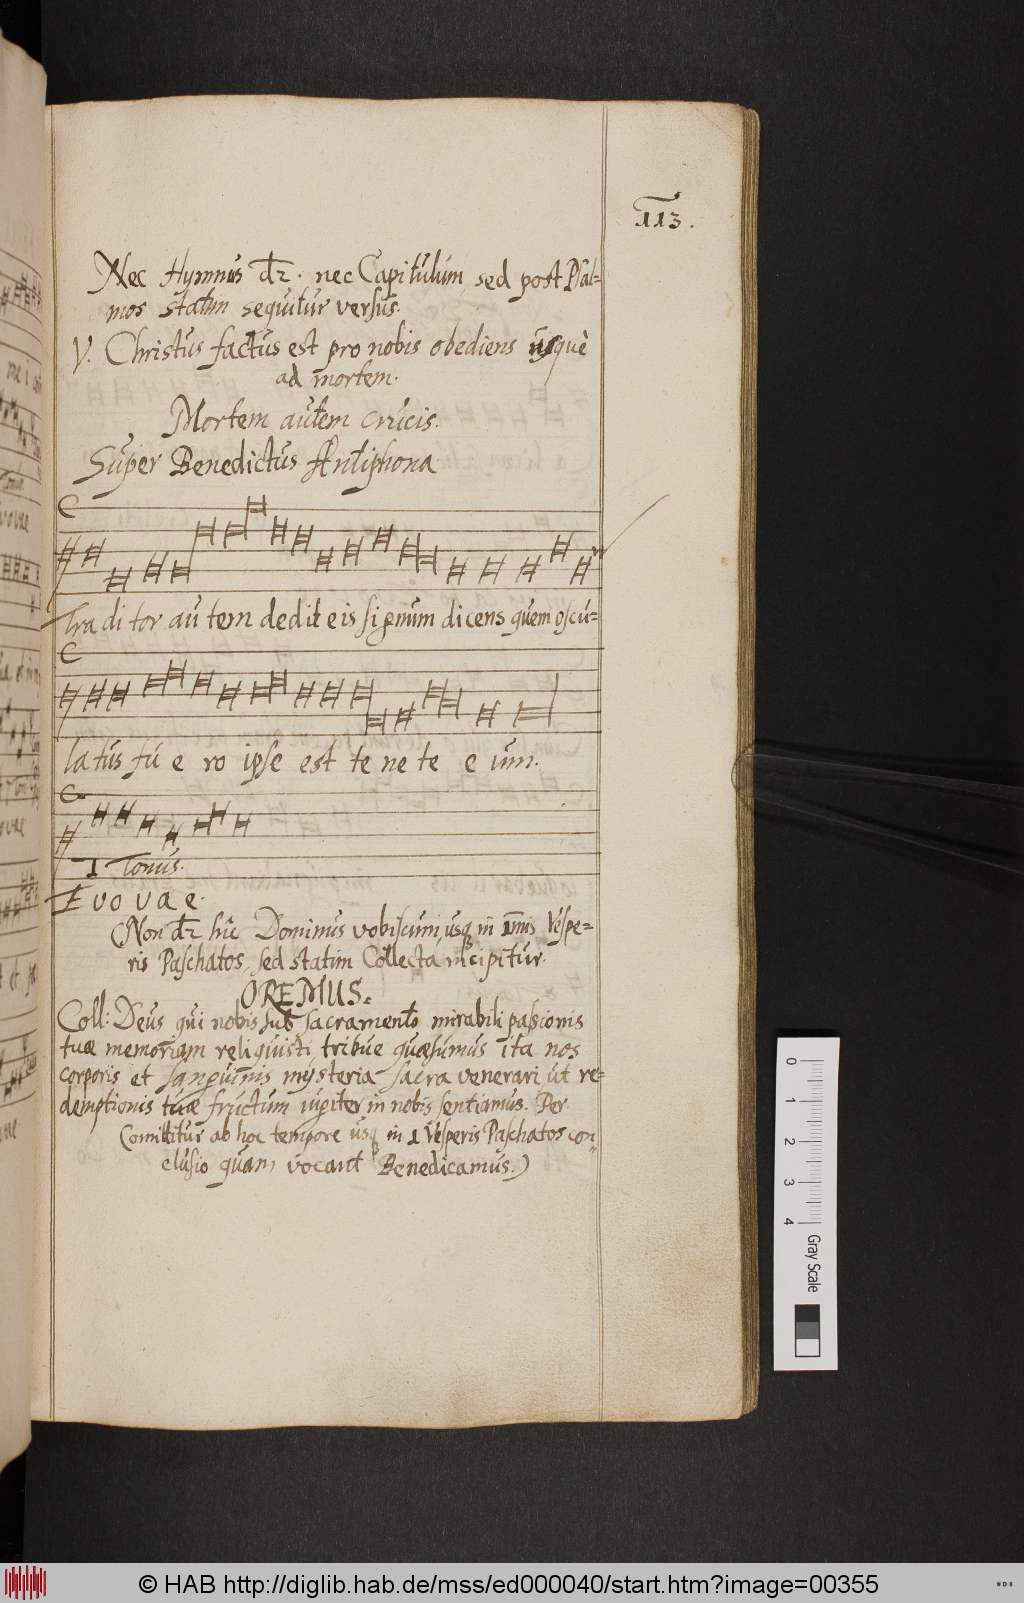 113.
Nec Hymnus dr. nec Capitulum sed post Psal=
mos statim sequitur versus.
V. Christus factus est pro nobis obediens usquè
ad mortem.
Mortem autem crucis.
Super Benedictus Antiphona
C
Tra di tor au tem dedit eis signum dicens quem oscu=
C
la tus fu e ro ipse est te ne te e um.
C
1 Tonus.
E vo va e.
(Non dr hîc Dominus vobiscum, usq in 1mis Vespe=
ris Paschatos, sed statim Collecta incipitur.
OREMUS.
Coll: Deus qui nobis sub sacramento mirabili passionis
tuæ memoriam reliquisti, tribue quæsumus ita nos
corporis et sanguinis mysteria sacra venerari, ut re=
demptionis tuæ fructum iugiter in nobis sentiamus. Per.
Comittitur ab hoc tempore usq in 1 Vesperis Paschatos con=
clusio quam vocant Benedicamus.)
0 1 2 3 4 Gray Scale
© HAB http://diglib.hab.de/mss/ed000040/start.htm?image=00355